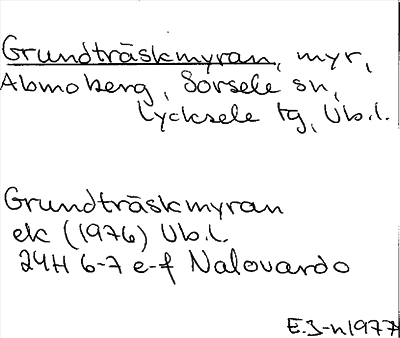 Grundträskmyran, myr,
Abmoberg, Sorsele sn,
Lycksele tg, Vb.l.
Grundträskmyran
ek (1976) Vb.l.
24H 6-7 e-f Nalovardo
E.J-n 1977